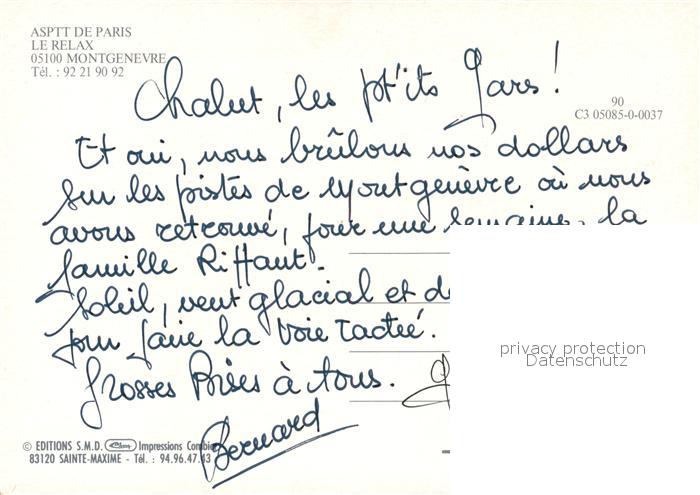 ASPTT DE PARIS
LE RELAX
05100 MONTGENEVRE
Tél. : 92 21 90 92
90
C3 05085-0-0037
Chalut, les pt'its Gars !
Et oui, nous brûlons nos dollars
sur les pistes de Montgenèvre où nous
avons retrouvé, pour une semaine, la
famille Riffaut.
Soleil, vent glacial et de
pour faire la Voie Lactée.
Grosses Bises à tous.
Bernard
privacy protection
Datenschutz
© EDITIONS S.M.D. Impressions Combier
83120 SAINTE-MAXIME - Tél. : 94.96.47.43